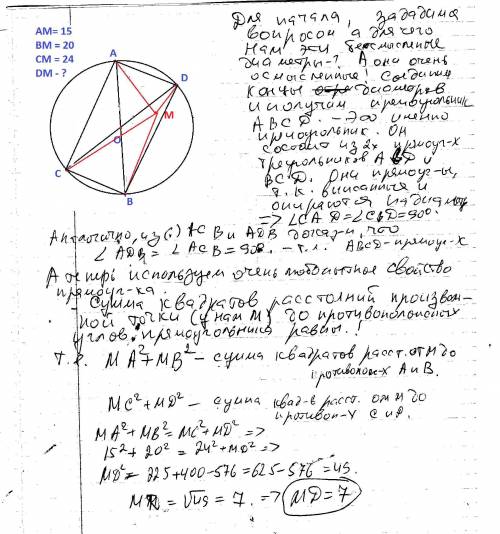 AM= 15
BM = 20
CM = 24
DM - ?
A
D
M
O
C
B
Для начала, зададимся
вопросом а для чего
нам эти бессмысленные
диаметры-? А они очень
осмысленные! Соединим
концы диаметров
и получим прямоугольник
ABCD. - Это именно
прямоугольник. Он
состоит из 2х прямоуг-х
треугольников ACD и
BCD. Они прямоуг-ы,
т.к. вписанные и
опираются на диаметр
=> ∠CAD=∠CBD=90°.
Аналогично, из ACB и ADB докаж-м, что
∠ADB = ∠ACB = 90°. - т.е. ABCD-прямоуг-к.
А теперь используем очень любопытное свойство
прямоуг-ка.
- Сумма квадратов расстояний произволь-
ной точки (у нам M) до противоположных
углов прямоугольника равны!
т.е. MA²+MB² - сумма квадратов расст. от M до
противопол-х A и B.
MC²+MD² - сумма квад-в расст. от M до
противоп-х C и D.
MA²+MB²=MC²+MD² =>
15²+20²=24²+MD² =>
MD²= 225+400-576=625-576=49.
MD = √49 = 7. => MD=7